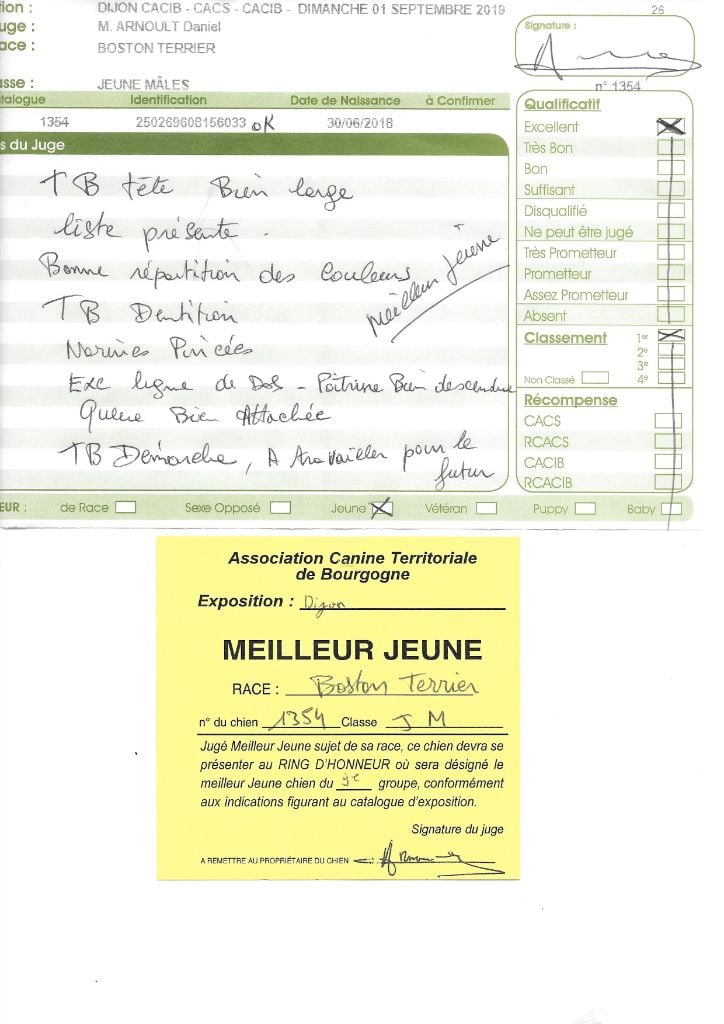 tion : DIJON CACIB - CACS - CACIB - DIMANCHE 01 SEPTEMBRE 2019 26
uge : M. ARNOULT Daniel
ace : BOSTON TERRIER
Signature :
n° 1354
asse : JEUNE MÂLES
atalogue Identification Date de Naissance à Confirmer
1354 250269608156033 OK 30/06/2018
s du Juge
TB tête Bien large
liste présente.
Bonne répartition des couleurs
TB Dentition
Narines Pincées
Exc ligne de Dos - Poitrine Bien descendue
Queue Bien Attachée
TB Démarche, A travailler pour le
futur
Meilleur jeune
Qualificatif
Excellent
Très Bon
Bon
Suffisant
Disqualifié
Ne peut être jugé
Très Prometteur
Prometteur
Assez Prometteur
Absent
Classement 1er
2e
3e
Non Classé 4e
Récompense
CACS
RCACS
CACIB
RCACIB
EUR : de Race Sexe Opposé Jeune Vétéran Puppy Baby
Association Canine Territoriale
de Bourgogne
Exposition : Dijon
MEILLEUR JEUNE
RACE : Boston Terrier
n° du chien 1354 Classe J M
Jugé Meilleur Jeune sujet de sa race, ce chien devra se
présenter au RING D'HONNEUR où sera désigné le
meilleur Jeune chien du 9e groupe, conformément
aux indications figurant au catalogue d'exposition.
Signature du juge
A REMETTRE AU PROPRIÉTAIRE DU CHIEN